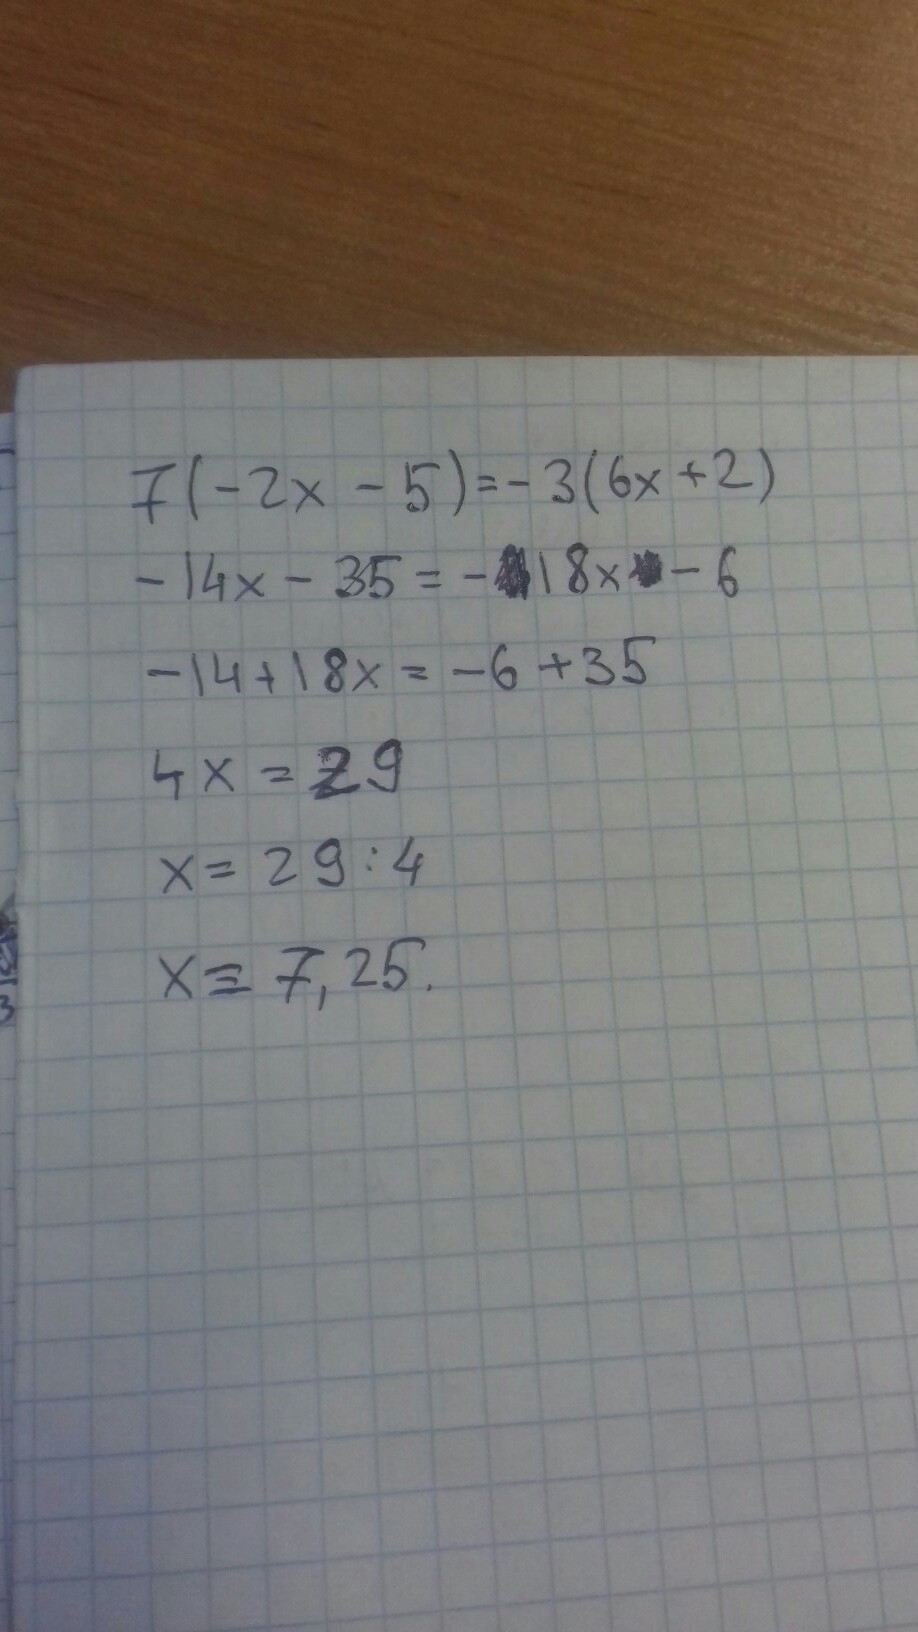 7(-2x-5)=-3(6x+2)
-14x-35=-18x-6
-14+18x=-6+35
4x=29
x=29:4
x=7,25.
3